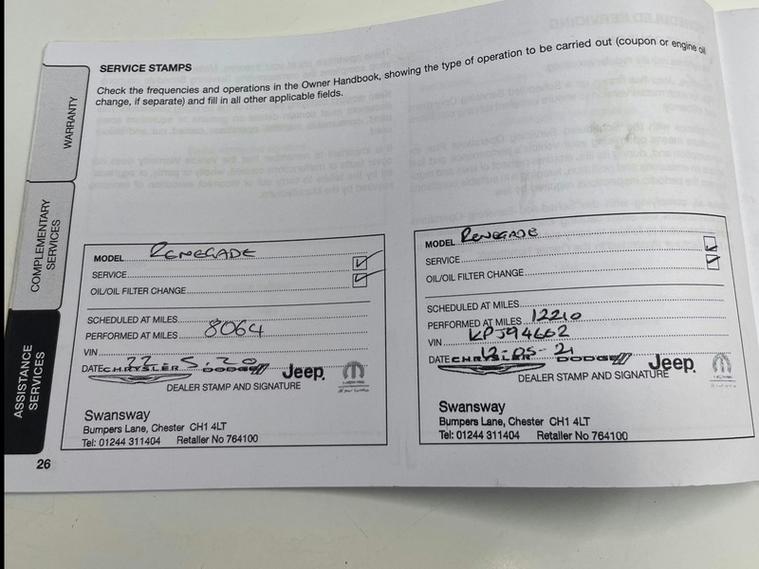 SERVICE STAMPS
Check the frequencies and operations in the Owner Handbook, showing the type of operation to be carried out (coupon or engine oil
change, if separate) and fill in all other applicable fields.
WARRANTY
COMPLEMENTARY
SERVICES
ASSISTANCE
SERVICES
MODEL RENEGADE
SERVICE
OIL/OIL FILTER CHANGE
SCHEDULED AT MILES
PERFORMED AT MILES 8064
VIN
DATE 22-5-20
CHRYSLER DODGE Jeep
DEALER STAMP AND SIGNATURE
Swansway
Bumpers Lane, Chester CH1 4LT
Tel: 01244 311404 Retailer No 764100
MODEL RENEGADE
SERVICE
OIL/OIL FILTER CHANGE
SCHEDULED AT MILES
PERFORMED AT MILES 12210
VIN KPJ94662
DATE 12-05-21
CHRYSLER DODGE Jeep
DEALER STAMP AND SIGNATURE
Swansway
Bumpers Lane, Chester CH1 4LT
Tel: 01244 311404 Retailer No 764100
26